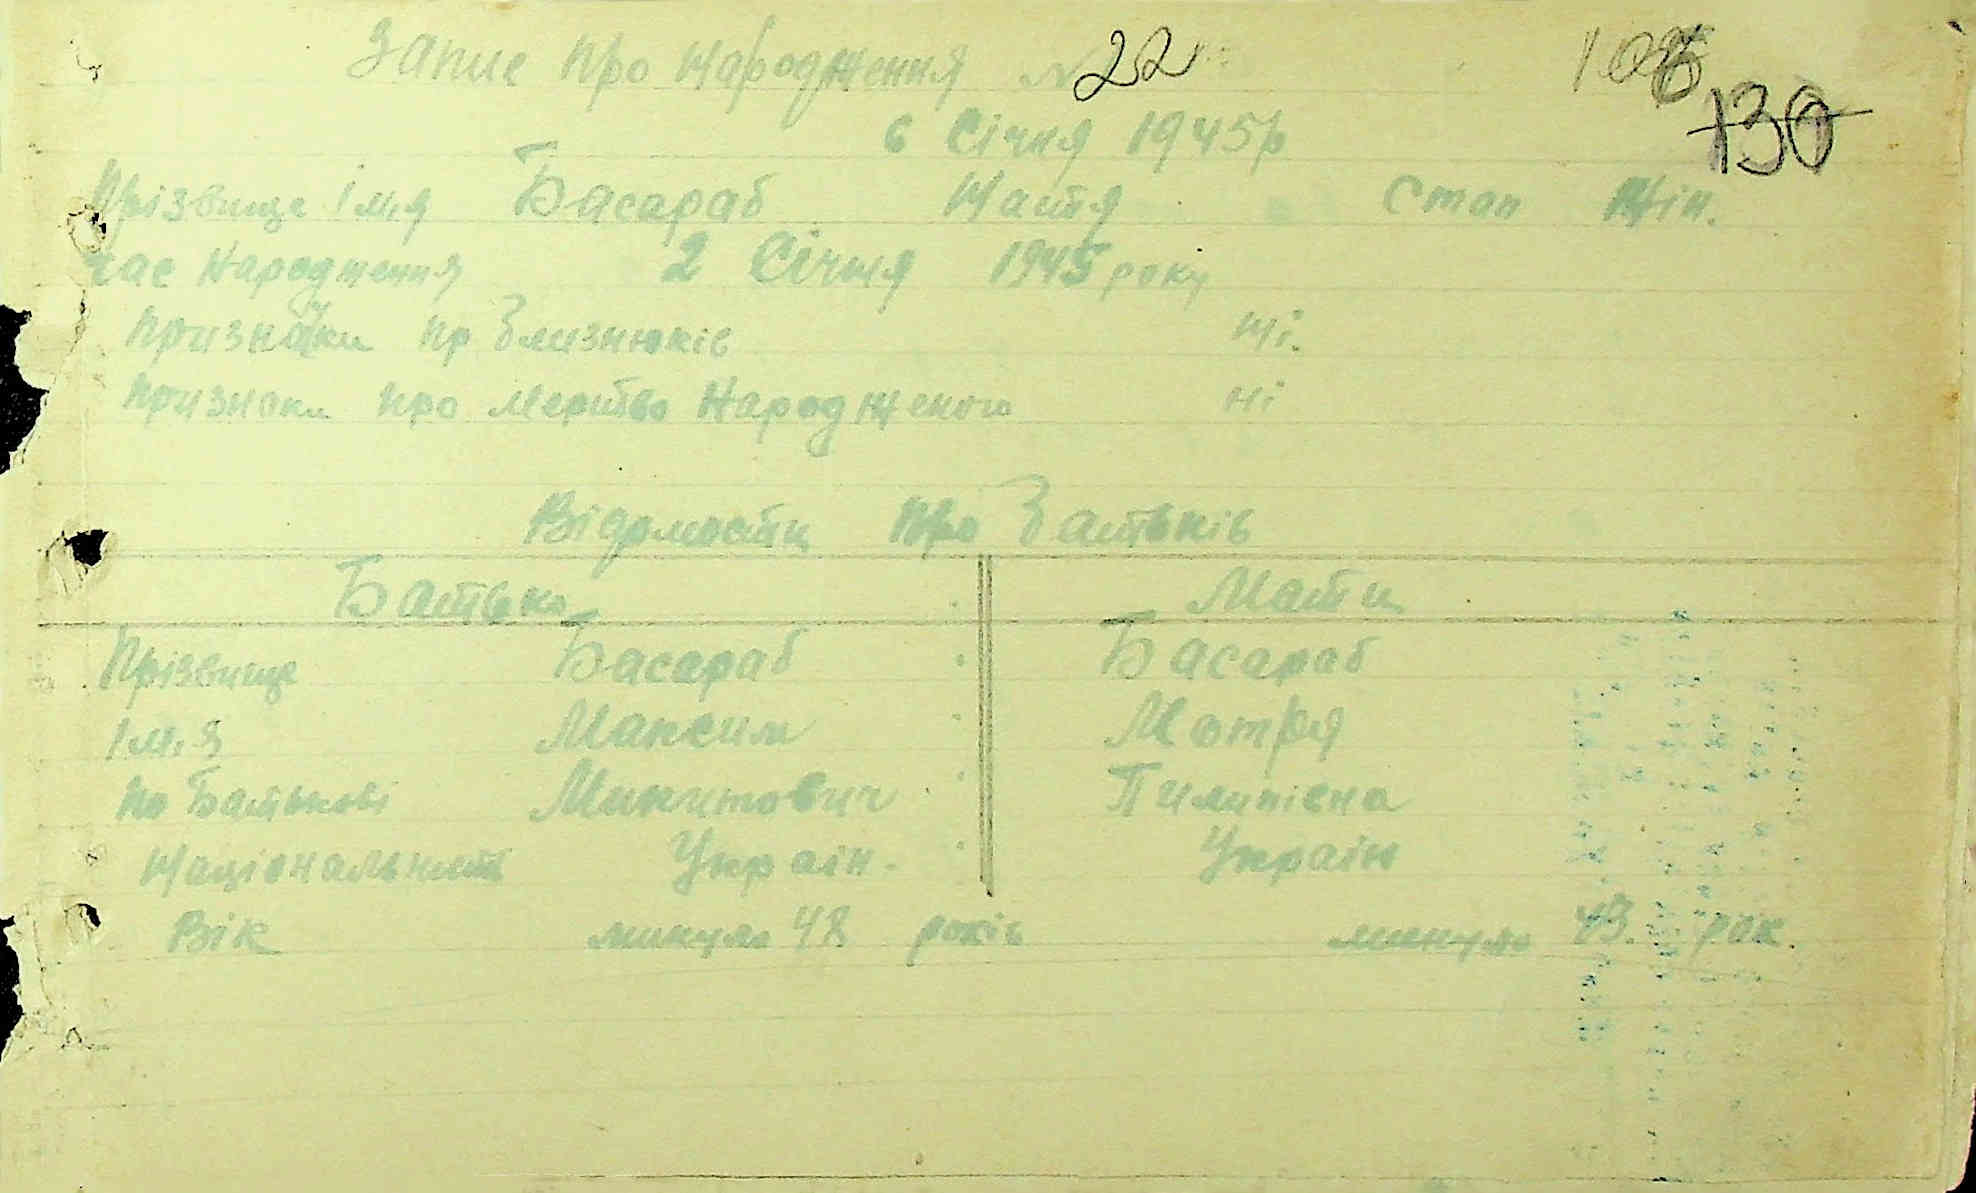 Запис про Народження № 22
106
130
6 Січня 1945р
Прізвище Ім,я Басараб Настя Стап Жін.
час Народження 2 Січня 1945 року
Признаки пр близнюків ні.
Признаки про мертво Народженого ні
Відомости про батьків
Батько Мати
Прізвище Басараб Басараб
Ім,я Максим Мотря
по Батькові Микитович Пилипівна
Національність Украін. Украін
Вік минуло 48 років минуло 43. рок.